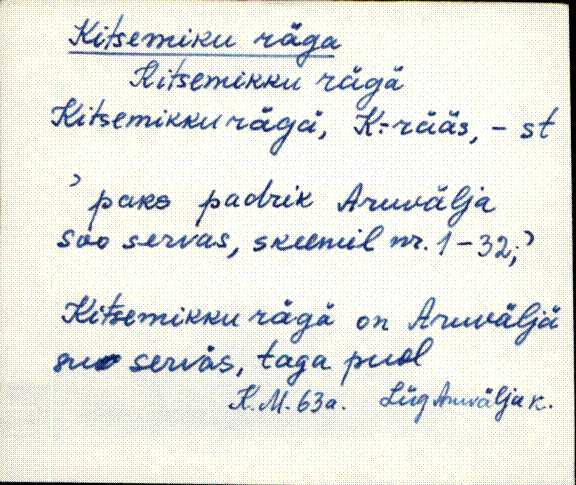 Kitsemiku räga
Kitsemikku rägä
Kitsemikku rägä, K-rääs, - st
' paks padrik Aruvälja
soo servas, skeemil nr. 1-32;'
Kitsemikku rägä on Aruväljä
suo serväs, taga puol
K.M. 63a. Lüg Aruvälja k.